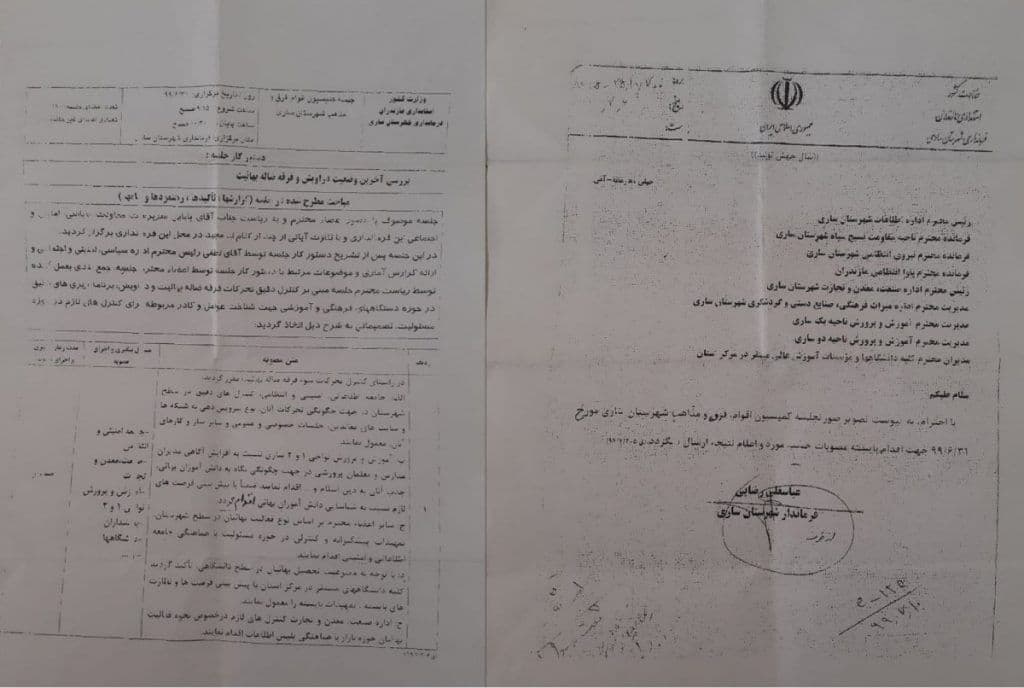 وزارت کشور
استانداری مازندران
فرمانداری شهرستان ساری
جلسه کمیسیون اقوام فرق و
مذاهب شهرستان ساری
روز/تاریخ برگزاری: ۹۹/۶/۳۱
ساعت شروع: ۹:۱۵ صبح
ساعت پایان: ۱۰:۳۰ صبح
مکان برگزاری: فرمانداری شهرستان
تعداد اعضای جلسه:
تعداد اعضای غیر
دستور کار جلسه:
بررسی آخرین وضعیت دراویش و فرقه ضاله بهائیت
مباحث مطرح شده در جلسه (گزارشها، تأکیدها، رهنمودها و
جلسه موضوف با حضور اعضاء محترم و به ریاست جناب آقای بابایی معاونت سیاسی، امنیتی و
اجتماعی این فرمانداری و با تلاوت آیاتی از کلام ا... مجید در محل این فرمانداری برگزار گردید.
در این جلسه پس از تشریح دستور کار جلسه توسط آقای رئیس محترم اداره سیاسی، امنیتی و اجتماعی و
ارائه گزارش آماری و موضوعات مرتبط با دستور کار جلسه توسط اعضاء محترم جلسه، جمع بندی بعمل آمده
توسط ریاست محترم جلسه مبنی بر کنترل دقیق تحرکات فرقه ضاله بهائیت و دراویش، برنامه ریزی های دقیق
در حوزه دستگاههای فرهنگی و آموزشی جهت شناخت عوامل و کادر مربوطه برای کنترل های لازم در حوزه
مسئولیت، تصمیماتی به شرح ذیل اتخاذ گردید:
ردیف
متن مصوبه
مسئول پیگیری و اجرای
مصوبه
در راستای کنترل تحرکات سوء فرقه ضاله بهائیت مقرر گردید:
الف: جامعه اطلاعاتی، امنیتی و انتظامی، کنترل های دقیق در سطح
شهرستان در جهت چگونگی تحرکات آنان، نوع سرویس دهی به شبکه ها
و سایت های معاندین، جلسات خصوصی و عمومی و سایر ساز و کارهای
آنان، معمول نمایند.
ب: آموزش و پرورش نواحی ۱ و ۲ ساری نسبت به افزایش آگاهی مدیران
مدارس و معلمان پرورشی در جهت چگونگی نگاه به دانش آموزان بهائی،
جذب آنان به دین اسلام و... اقدام نمایند. ضمناً با پیش بینی فرصت های
لازم نسبت به شناسایی دانش آموزان بهائی اقدام گردد.
ج: سایر اعضاء محترم بر اساس نوع فعالیت بهائیان در سطح شهرستان،
تمهیدات پیشگیرانه و کنترلی در حوزه مسئولیت با هماهنگی جامعه
اطلاعاتی و امنیتی اقدام نمایند.
د: با توجه به ممنوعیت تحصیل بهائیان در سطح دانشگاهی، تأکید گردید
کلیه دانشگاههای مستقر در مرکز استان با پیش بینی فرصت ها و نظارت
های بایسته، تمهیدات بایسته را معمول نمایند.
ح: اداره صنعت، معدن و تجارت کنترل های لازم درخصوص نحوه فعالیت
بهائیان حوزه بازار با هماهنگی پلیس اطلاعات اقدام نمایند.
۱
جامعه امنیتی و
صنعت، معدن و
تجارت
آموزش و پرورش
نواحی ۱ و ۲
دانشگاهها
وزارت کشور
استانداری مازندران
فرمانداری شهرستان ساری
جمهوری اسلامی ایران
((سال جهش تولید))
خیلی محرمانه-آنی
رئیس محترم اداره اطلاعات شهرستان ساری
فرمانده محترم ناحیه مقاومت بسیج سپاه شهرستان ساری
فرمانده محترم نیروی انتظامی شهرستان ساری
فرمانده محترم پاوا انتظامی مازندران
رئیس محترم اداره صنعت، معدن و تجارت شهرستان ساری
مدیریت محترم اداره میراث فرهنگی، صنایع دستی و گردشگری شهرستان ساری
مدیریت محترم آموزش و پرورش ناحیه یک ساری
مدیریت محترم آموزش و پرورش ناحیه دو ساری
مدیران محترم کلیه دانشگاهها و مؤسسات آموزش عالی مستقر در مرکز استان
سلام علیکم
با احترام، به پیوست تصویر صورتجلسه کمیسیون اقوام، فرق و مذاهب شهرستان ساری مورخ
۹۹/۶/۳۱ جهت اقدام بایسته مصوبات حسب مورد و اعلام نتیجه، ارسال می گردد.
عباسعلی رضایی
فرماندار شهرستان ساری